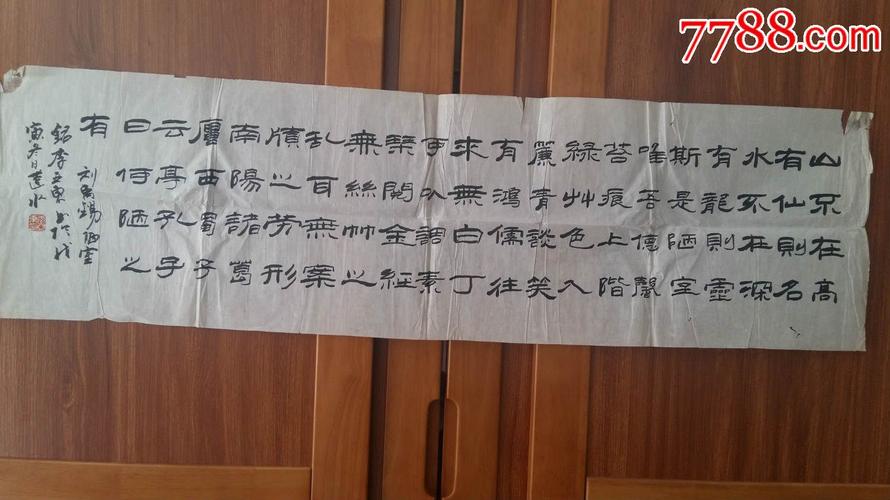 7788.com
山不在高
有仙則名
水不在深
有龍則靈
斯是陋室
唯吾德馨
苔痕上階
綠艸色入
簾青談笑
有鴻儒往
來無白丁
可以調素
琴閱金經
無絲竹之
乱耳無案
牘之勞形
南陽諸葛
廬西蜀子
云亭孔子
曰何陋之
有
刘禹锡陋室
铭李书于戊
寅冬月建水